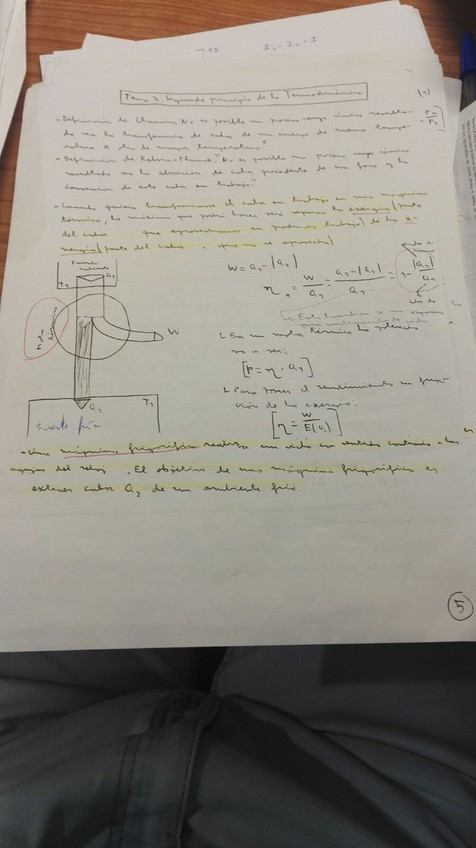 Tema 3. Segundo principio de la Termodinámica
(1)
- Definición de Clausius: No es posible un proceso cuyo único resulta-
do sea la transferencia de calor de un cuerpo de menor tempe-
ratura a otro de mayor temperatura"
- Definición de Kelvin-Planck: "No es posible un proceso cuyo único
resultado sea la absorción de calor procedente de un foco y la
conversión de este calor en trabajo"
- Cuando quiera transformarse el calor en trabajo en una máquina
térmica, lo máximo que podrá hacer será separar la exergía (parte
del calor que aprovecharemos en producir trabajo) de la a-
nergía (parte del calor que no se aprovecha)
Fuente
caliente
Q1
T1
W
Q2
T2
Fuente fría
W = Q1 - |Q2|
η = W/Q1 = Q1-|Q2|/Q1 = 1 - |Q2|/Q1
L En un motor térmico la potencia
va a ser:
[P = η · Q1]
L Para poner el rendimiento en fun-
ción de la exergía:
[η = W/E(Q1)]
- Una máquina frigorífica realiza un ciclo en sentido contrario a las
agujas del reloj. El objetivo de una máquina frigorífica es
extraer calor Q2 de un ambiente frío
5